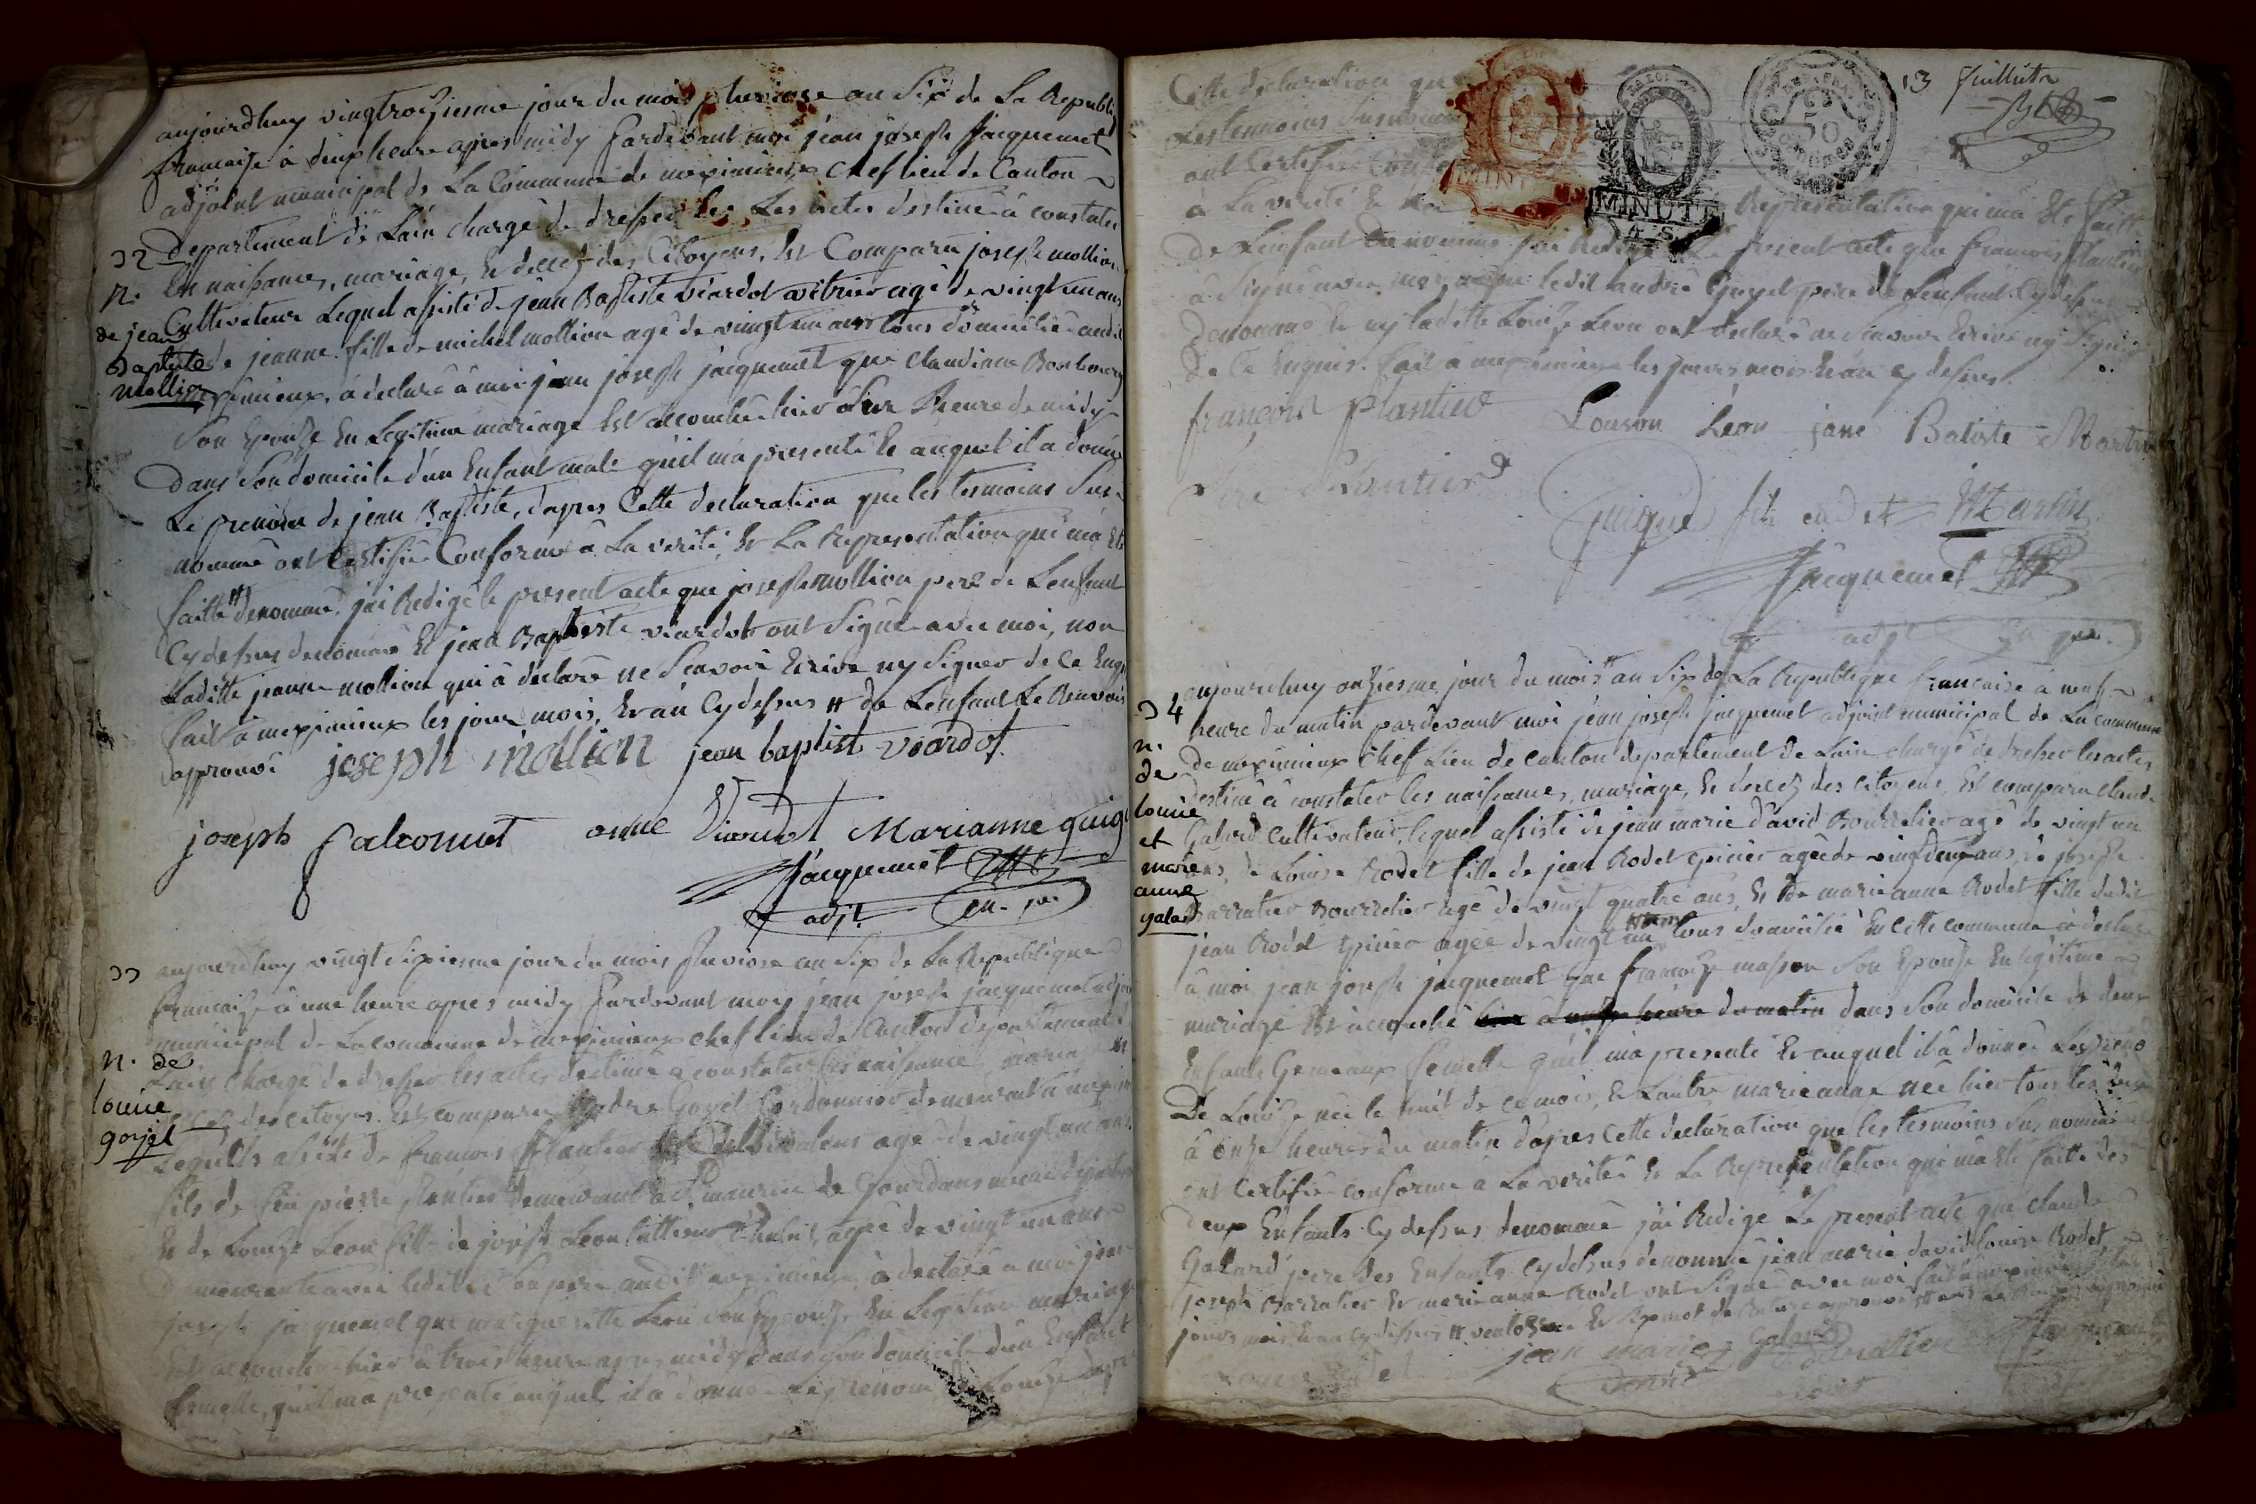 aujourdhuy vingtroizieme jour du mois pluviose an Six de La Republi
francaise à deux heure apres midy pardevant moi jean joseph jacquemet
adjoint municipal de La Commune de meximieux chef lieu de Canton
departement de Lain chargé de dresser les Les actes destiné à constater
32
Les naissances, mariage, et decez des Citoyens, Est Comparu joseph mollion
n.
Cultivateur Lequel assisté de jean Baptiste viardot vitrier agé de vingt un ans
de jean
de jeanne fille de michel mollion agé de vingt un ans tous domicilié audit
Baptiste
meximieux, à declaré à moi jean joseph jacquemet que claudine
mollion
Son Epouse En Legitime mariage Est accouchée hier à Une heure de midy
dans Son domicile d'un Enfant male qu'il m'a presenté Et auquel il a donné
Le prenom de jean Baptiste, d'apres Cette declaration que les temoins Sus
nommé ont Certifié Conforme à La verité, Et La Representation qui m'a Eté
faitte # denommé, j'ai Redigé le present acte que joseph mollion pere de Lenfant
Cydessus denommé Et jean Baptiste viardot ont Signé avec moi, non
Laditte jeanne mollion qui à declaré ne Scavoir Ecrire ny Signer de Ce Enquis
fait à meximieux les jour mois, Et an Cydessus # de Lenfant Le Renvois
approuvé joseph mollion jean baptiste viardot
joseph falconnet anne Viardot Marianne guig
Jacquemet
adjt.
33
aujourdhuy vingt Sixieme jour du mois pluviose an Six de La Republique
francaise à une heure apres midy pardevant moy jean joseph jacquemet adjoint
municipal de La commune de meximieux chef lieu de Canton departement de
n. de
Lain chargé de dresser les actes destiné a constater les naissance, mariage Et
louise
decez des citoyens. Est comparu andre Goyet Cordonnier demeurant à meximieux
goyet
Lequel assisté de francois plantier Cultivateur agé de vingt un ans
fils de feu pierre plantier demeurant à St maurice de Gourdans
Et de Louize Leon fille de joseph Leon agée de vingt un ans
demeurante avec ledit Son pere audit meximieux à declaré a moi jean
joseph jacquemet que margueritte Leon Son Epouse En Legitime mariage
Est accouchée hier à trois heure apres midy dans Son domicile d'un Enfant
femelle, qu'il m'a presenté auquel il à donné Le prenom de Louize dapres
13 feuillete
Cette declaration que
Les temoins Susnommé
ont Certifié Conforme
a La verité Et La Representation qui m'a Eté faitte
MINUTE
50
de Lenfant denommé j'ai Redigé Le present acte que francois Plantier
à Signé avec moi ledit andré Goyet pere de Lenfant Cydessus
denommé Et ny laditte Louize Leon ont declaré ne Scavoir Ecrire ny Signer
de Ce Enquis. fait à meximieux les jours mois Et an cy dessus.
françois plantier Louson Léon jane Batiste Martin
Plantier
guigue fils cadet Martin
Jacquemet
adjt
34
aujourdhuy onzieme jour du mois # an Six de La Republique francaise à neuf
heure du matin pardevant moi jean joseph jacquemet adjoint municipal de La commune
n.
de meximieux chef Lieu de canton departement de Lain chargé de dresser les actes
de
destiné à constater les naissances, mariage, Et decez des citoyens, Est comparu claude
louise
Galard cultivateur, lequel assisté de jean marie david Bourrelier agé de vingt un
et
ans, de Louise Rodet fille de jean Rodet epicier agée de vingt deux ans, de joseph
marie
anne
Barratier Bourrelier agé de vingt quatre ans, Et de marie anne Rodet fille dudit
galard
jean Rodet epicier agée de vingt un tous domicilié En cette commune à declaré
à moi jean joseph jacquemet que francoise masson Son Epouse En legitime
mariage Est accouché hier à neuf heure du matin dans Son domicile de deux
Enfants Gemeaux femelle qu'il m'a presenté Et auquel il à donnée Les prenom
De Louize née le huit de ce mois, Et Lautre marie anne née hier tous les deux
à onze heures du matin d'apres Cette declaration que les temoins Sus nommé
ont Certifié conforme a La verité Et La Representation qui m'a Eté faitte des
deux Enfants Cydessus denommé j'ai Redigé Le present acte que claude
Galard pere des Enfants Cydessus denommé jean marie david louise Rodet
joseph Barratier Et marie anne Rodet ont Signé avec moi fait à meximieux les
jours mois Et an cydessus # ventose
jean marie galard
david